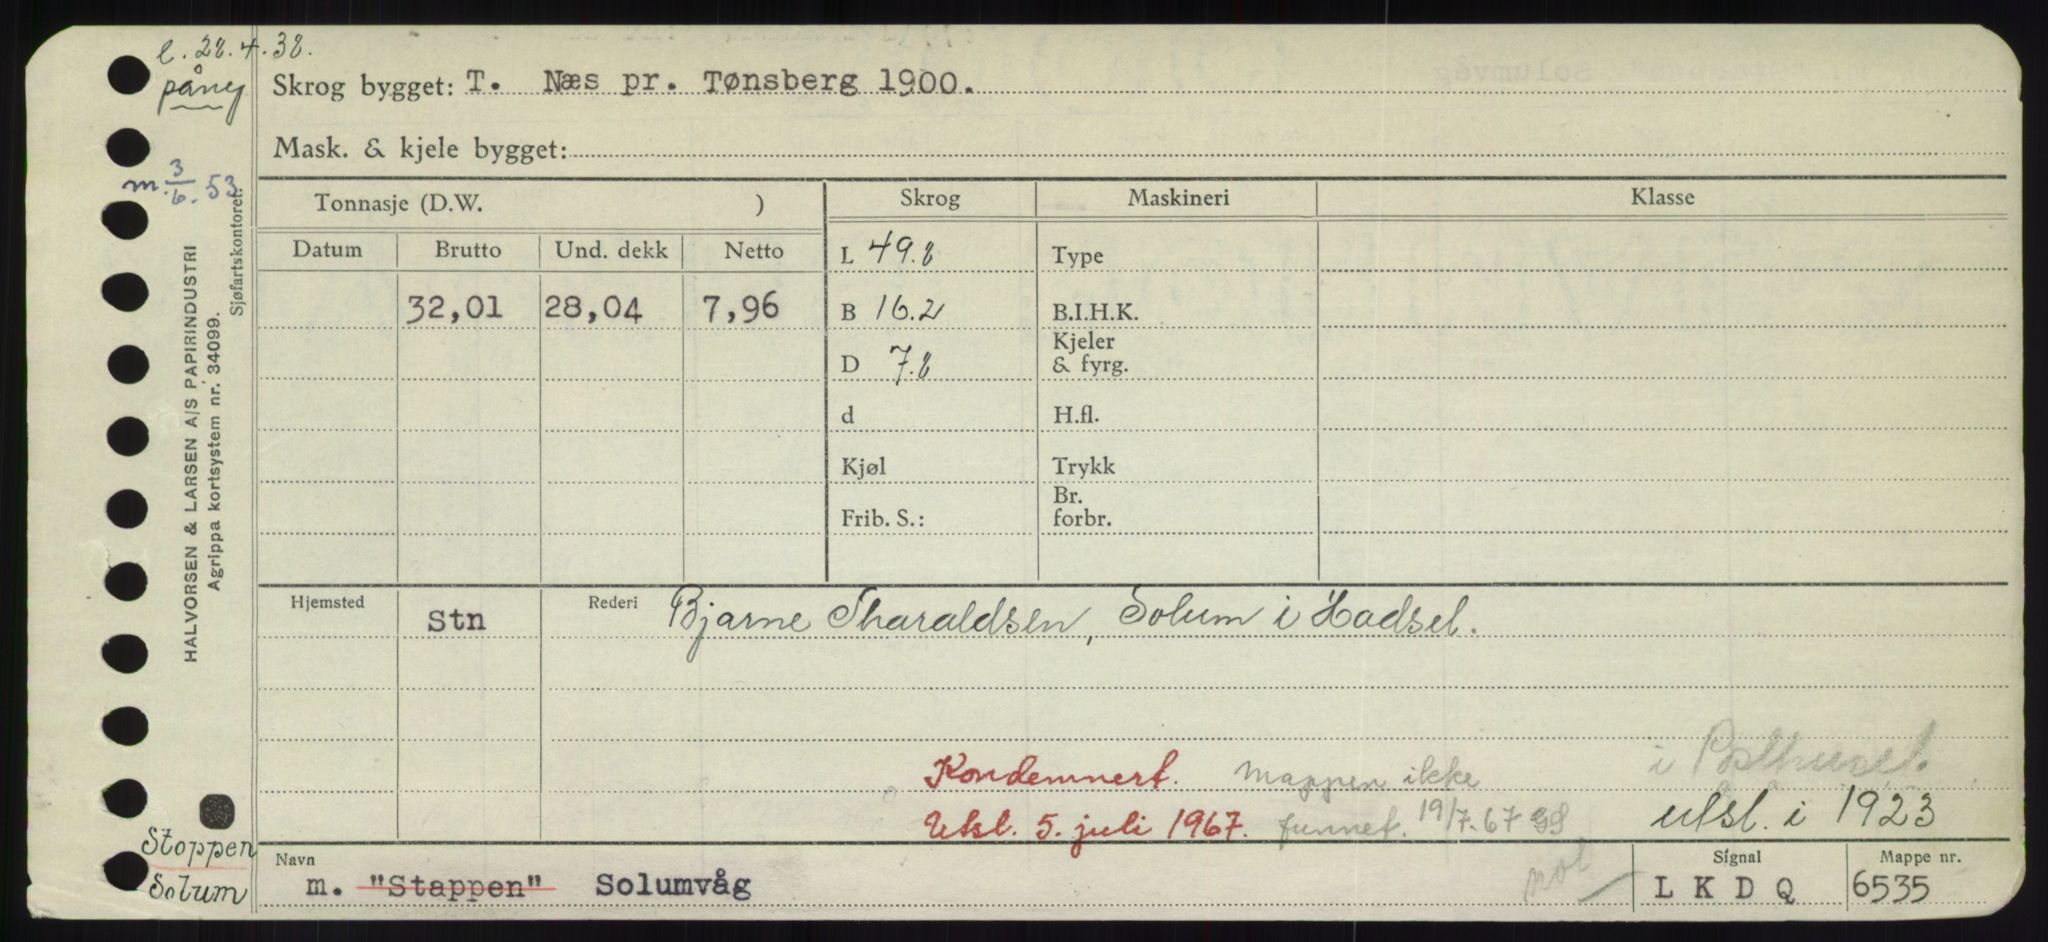 e. 28.4.38.
påney
Skrog bygget: T. Næs pr. Tønsberg 1900.
Mask. & kjele bygget:
m. 3/6. 53
HALVORSEN & LARSEN A/S PAPIRINDUSTRI
Agrippa kortsystem nr. 34099.
Sjøfartskontoret.
Tonnasje (D.W. )
Skrog
Maskineri
Klasse
Datum Brutto Und. dekk Netto
32,01 28,04 7,96
L 49.8
B 16.2
D 7.8
d
Kjøl
Frib. S.:
Type
B.I.H.K.
Kjeler
& fyrg.
H.fl.
Trykk
Br.
forbr.
Hjemsted Stn Rederi Bjarne Tharaldsen, Solum i Hadsel.
Kondemnert. Mappen ikke i
Utsl. 5. juli 1967. funnet. 19/7.67 utsl. i 1923
Stoppen
Solum
Navn m. "Stappen" Solumvåg
Signal L K D Q
Mappe nr. 6535